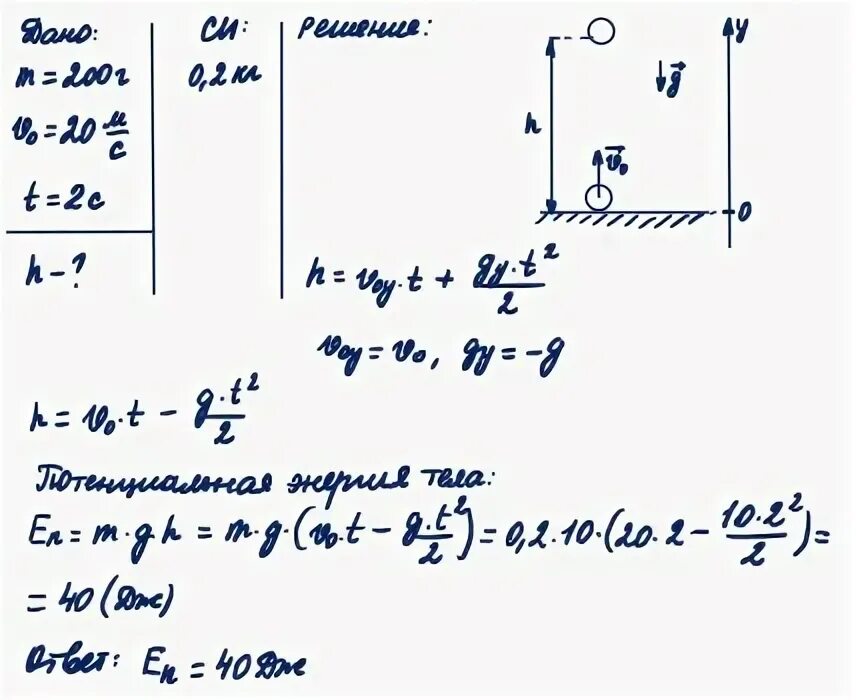 Дано:
m = 200 г
v₀ = 20 м/с
t = 2 с
h – ?
СИ:
0,2 кг
Решение:
h
v⃗₀
g⃗
y
0
h = v₀y · t + gy · t²/2
v₀y = v₀, gy = -g
h = v₀ · t - g · t²/2
Потенциальная энергия тела:
Eп = m · g h = m · g · (v₀ · t - g · t²/2) = 0,2 · 10 · (20 · 2 - 10 · 2²/2) =
= 40 (Дж)
Ответ: Eп = 40 Дж